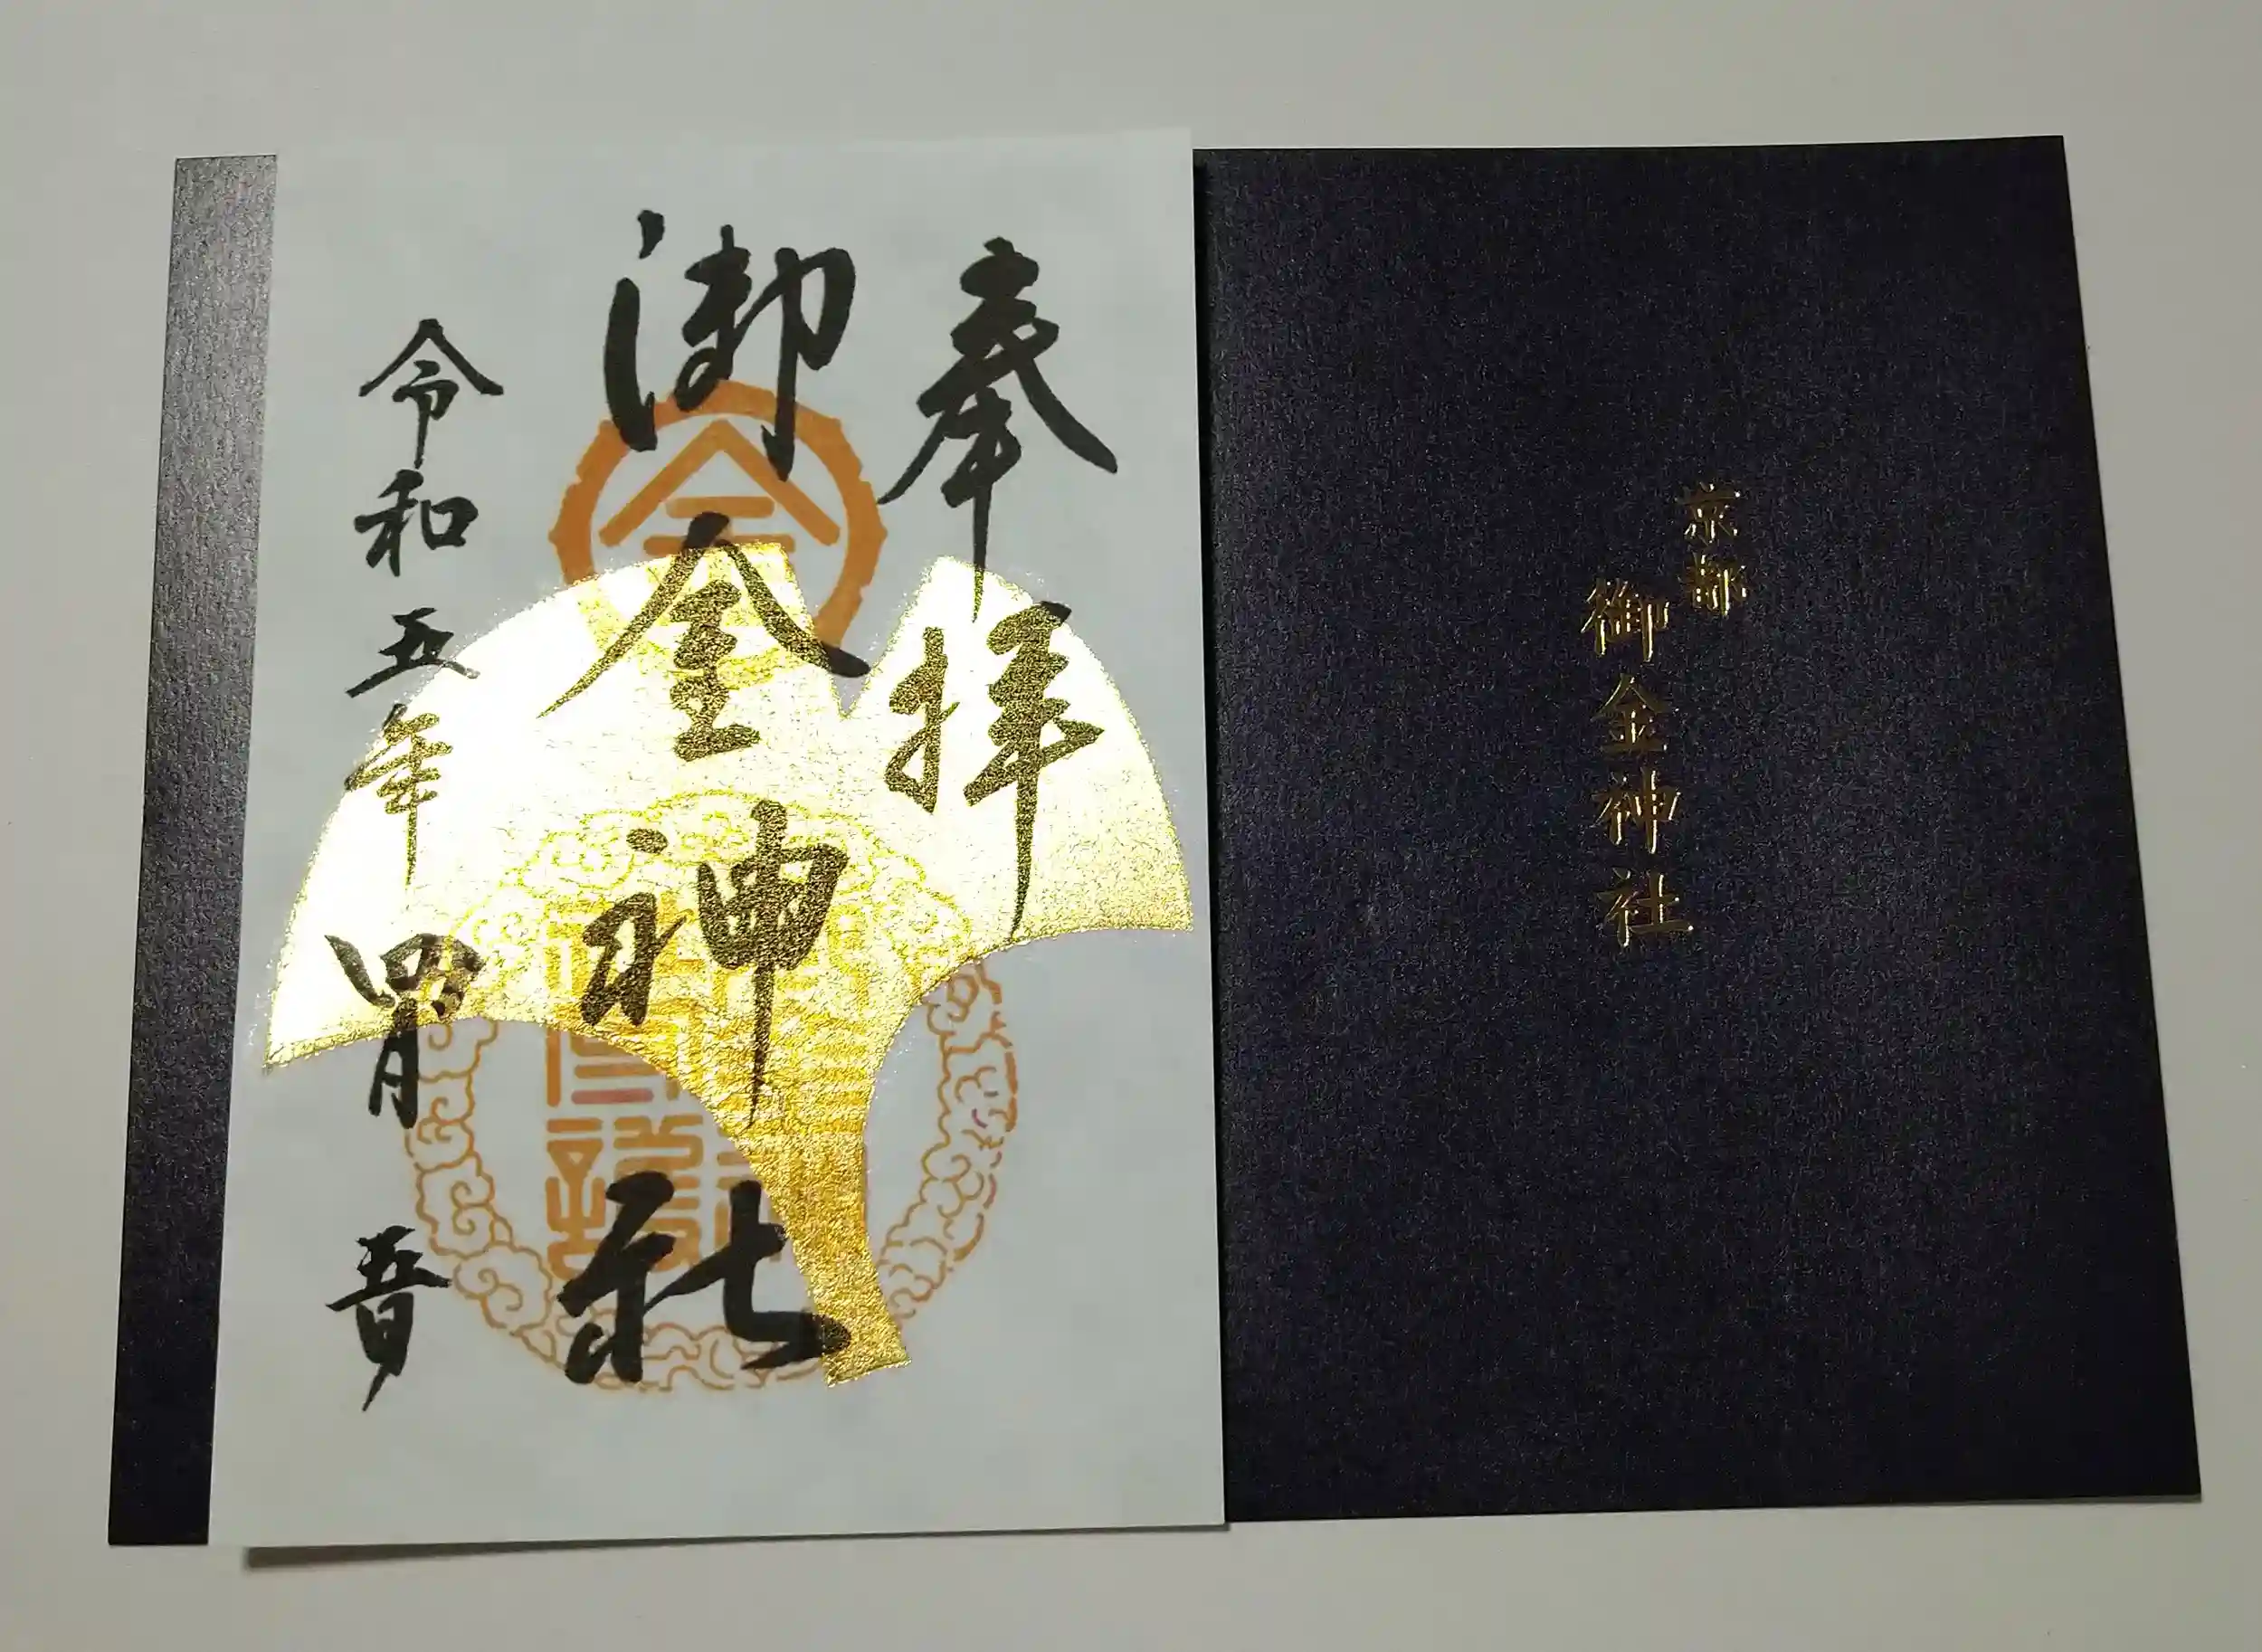 奉拝
御金神社
令和五年四月五日
京都
御金神社